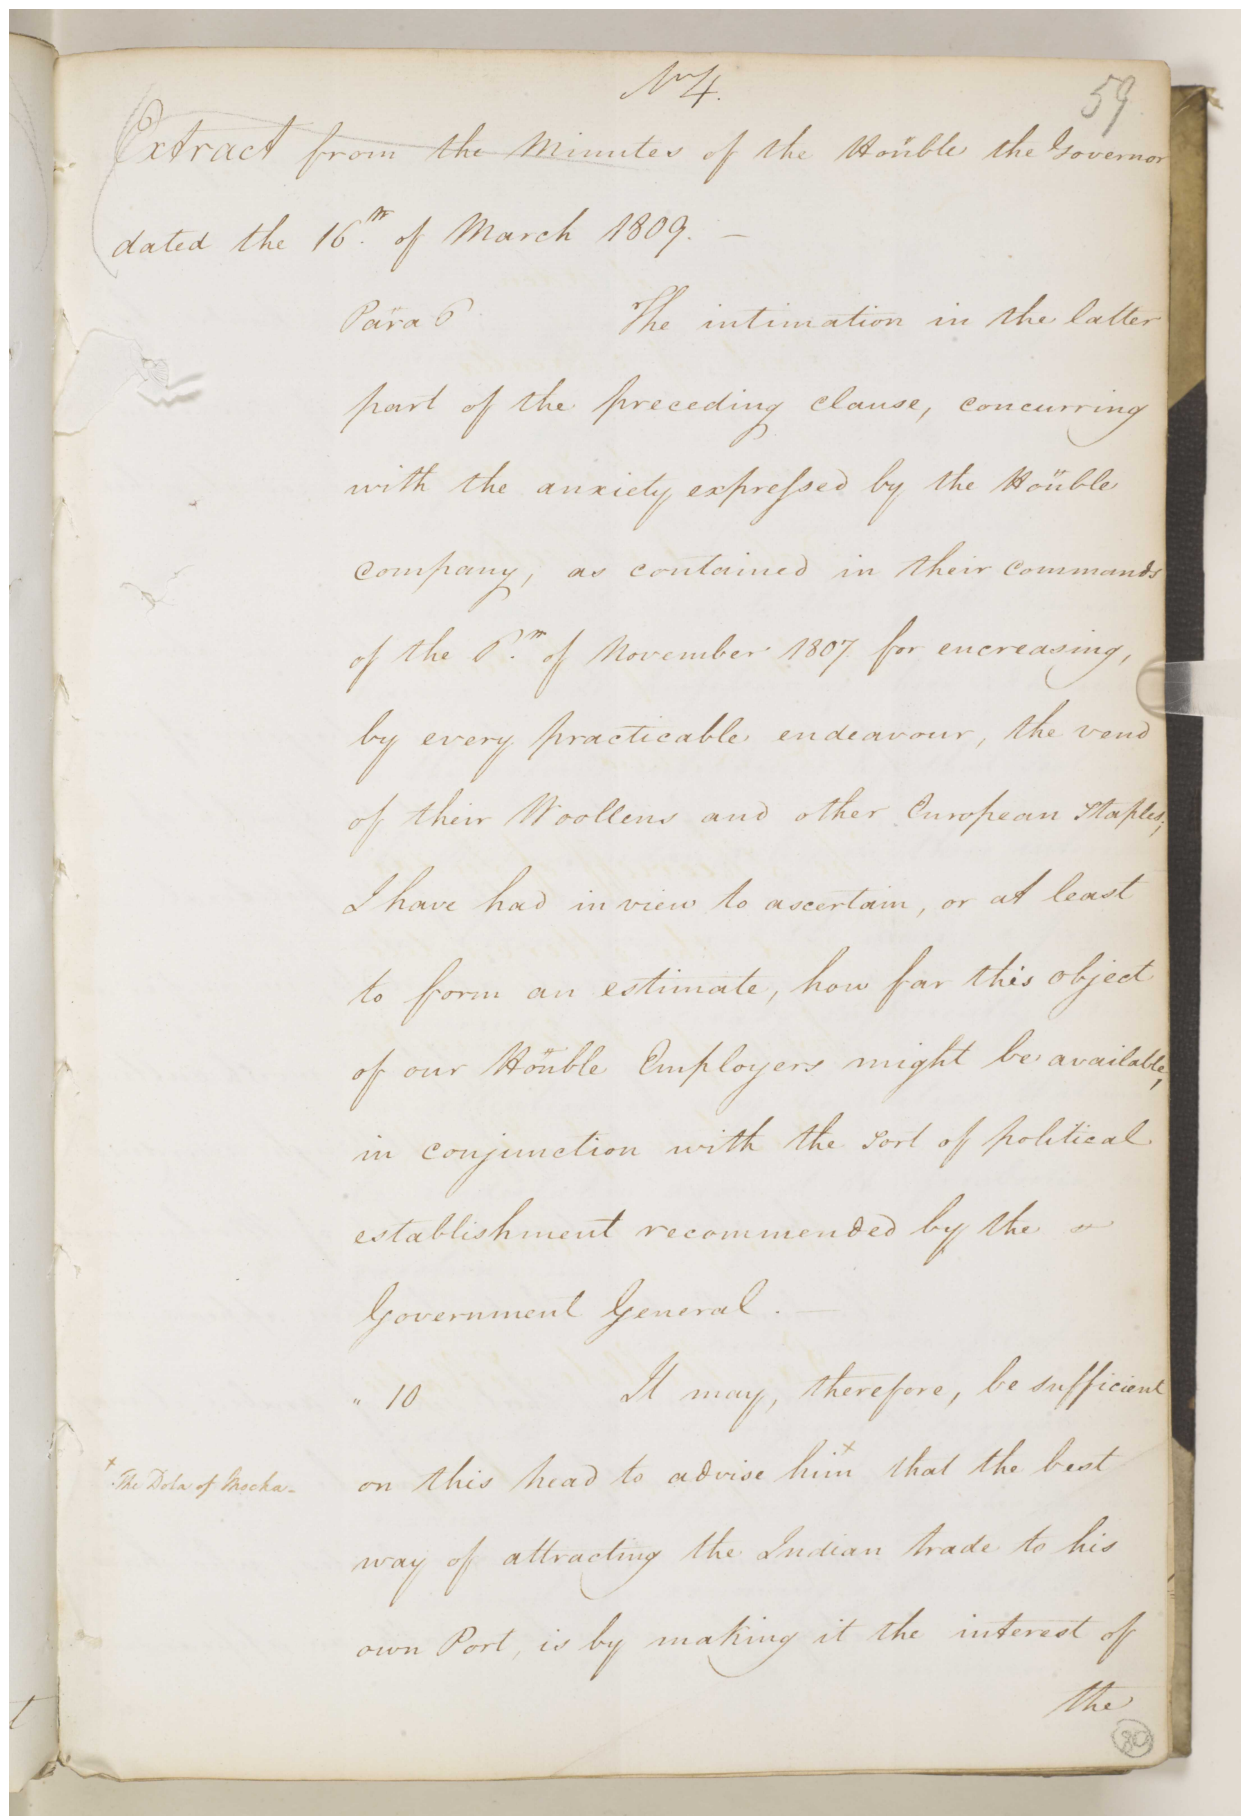 No 4.
59
Extract from the Minutes of the Honble the Governor
dated the 16.th of March 1809. —
Para 6 The intimation in the latter
part of the preceding clause, concurring
with the anxiety expressed by the Honble
Company, as contained in their commands
of the 6.th of November 1807 for encreasing,
by every practicable endeavour, the vend
of their Woollens and other European Staples;
I have had in view to ascertain, or at least
to form an estimate, how far this object
of our Honble Employers might be available,
in conjunction with the sort of political
establishment recommended by the
Government General. —
" 10 It may, therefore, be sufficient
on this head to advise him + that the best
+ The Dola of Mocha -
way of attracting the Indian trade to his
own Port, is by making it the interest of
the
80